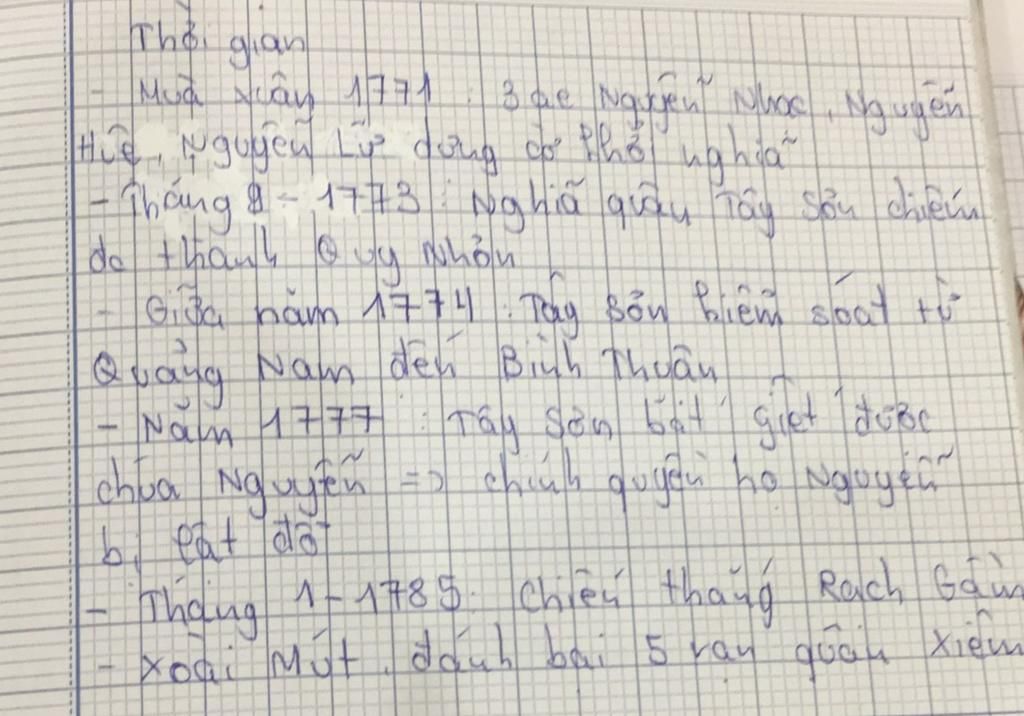 Thời gian
- Mùa xuân 1771 : 3 ae Nguyễn Nhạc, Nguyễn
Huệ, Nguyễn Lữ dựng cờ khởi nghĩa
- Tháng 9 - 1773 : Nghĩa quân Tây Sơn chiếm
dc thành Quy Nhơn
- Giữa năm 1774 : Tây Sơn kiểm soát từ
Quảng Nam đến Bình Thuận
- Năm 1777 : Tây Sơn bắt giết được
chúa Nguyễn => chính quyền họ Nguyễn
b, lật đổ
- Tháng 1-1785. Chiến thắng Rạch Gầm
- Xoài Mút, đánh bại 5 vạn quân Xiêm